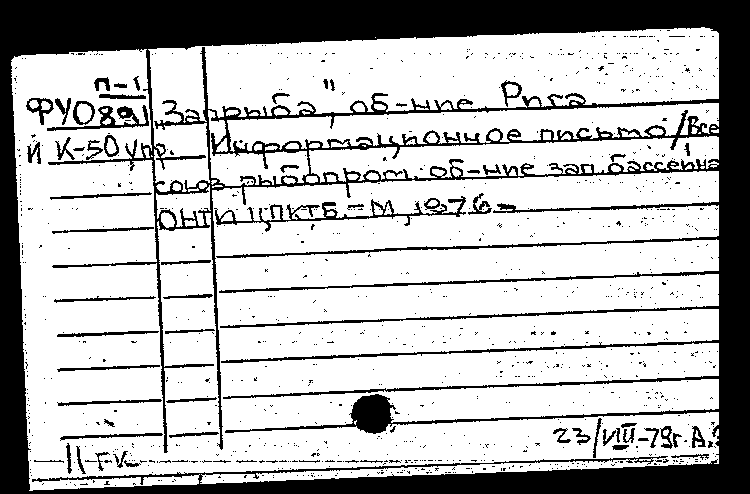 П-1.
ФУ0891 „Запрыба", об-ние. Рига.
й К-50 упр. Информационное письмо / Все
союз рыбопром. об-ние зап. бассейна
ОНТИ ЦПКТБ. – М, 1976 –
23/VIII-79г А.
11 ГК